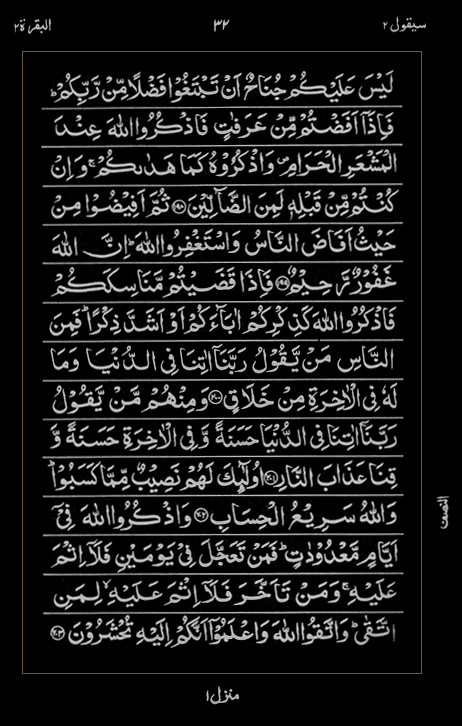 سيقول ٢ ٣٢ البقرة ٢
لَيْسَ عَلَيْكُمْ جُنَاحٌ اَنْ تَبْتَغُوْا فَضْلًا مِّنْ رَّبِّكُمْ ؕ
فَاِذَاۤ اَفَضْتُمْ مِّنْ عَرَفٰتٍ فَاذْكُرُوا اللّٰهَ عِنْدَ
الْمَشْعَرِ الْحَرَامِ ۪ وَاذْكُرُوْهُ كَمَا هَدٰىكُمْ ۚ وَاِنْ
كُنْتُمْ مِّنْ قَبْلِهٖ لَمِنَ الضَّآلِّيْنَ ﴿۱۹۸﴾ ثُمَّ اَفِيْضُوْا مِنْ
حَيْثُ اَفَاضَ النَّاسُ وَاسْتَغْفِرُوا اللّٰهَ ؕ اِنَّ اللّٰهَ
غَفُوْرٌ رَّحِيْمٌ ﴿۱۹۹﴾ فَاِذَا قَضَيْتُمْ مَّنَاسِكَكُمْ
فَاذْكُرُوا اللّٰهَ كَذِكْرِكُمْ اٰبَآءَكُمْ اَوْ اَشَدَّ ذِكْرًا ؕ فَمِنَ
النَّاسِ مَنْ يَّقُوْلُ رَبَّنَاۤ اٰتِنَا فِى الدُّنْيَا وَمَا
لَهٗ فِى الْاٰخِرَةِ مِنْ خَلَاقٍ ﴿۲۰۰﴾ وَمِنْهُمْ مَّنْ يَّقُوْلُ
رَبَّنَاۤ اٰتِنَا فِى الدُّنْيَا حَسَنَةً وَّفِى الْاٰخِرَةِ حَسَنَةً وَّ
قِنَا عَذَابَ النَّارِ ﴿۲۰۱﴾ اُولٰٓئِكَ لَهُمْ نَصِيْبٌ مِّمَّا كَسَبُوْا ؕ
وَاللّٰهُ سَرِيْعُ الْحِسَابِ ﴿۲۰۲﴾ وَاذْكُرُوا اللّٰهَ فِىْۤ
اَيَّامٍ مَّعْدُوْدٰتٍ ؕ فَمَنْ تَعَجَّلَ فِىْ يَوْمَيْنِ فَلَاۤ اِثْمَ
عَلَيْهِ ۚ وَمَنْ تَاَخَّرَ فَلَاۤ اِثْمَ عَلَيْهِ ۙ لِمَنِ
اتَّقٰى ؕ وَاتَّقُوا اللّٰهَ وَاعْلَمُوْۤا اَنَّكُمْ اِلَيْهِ تُحْشَرُوْنَ ﴿۲۰۳﴾
النصف
منزل ١